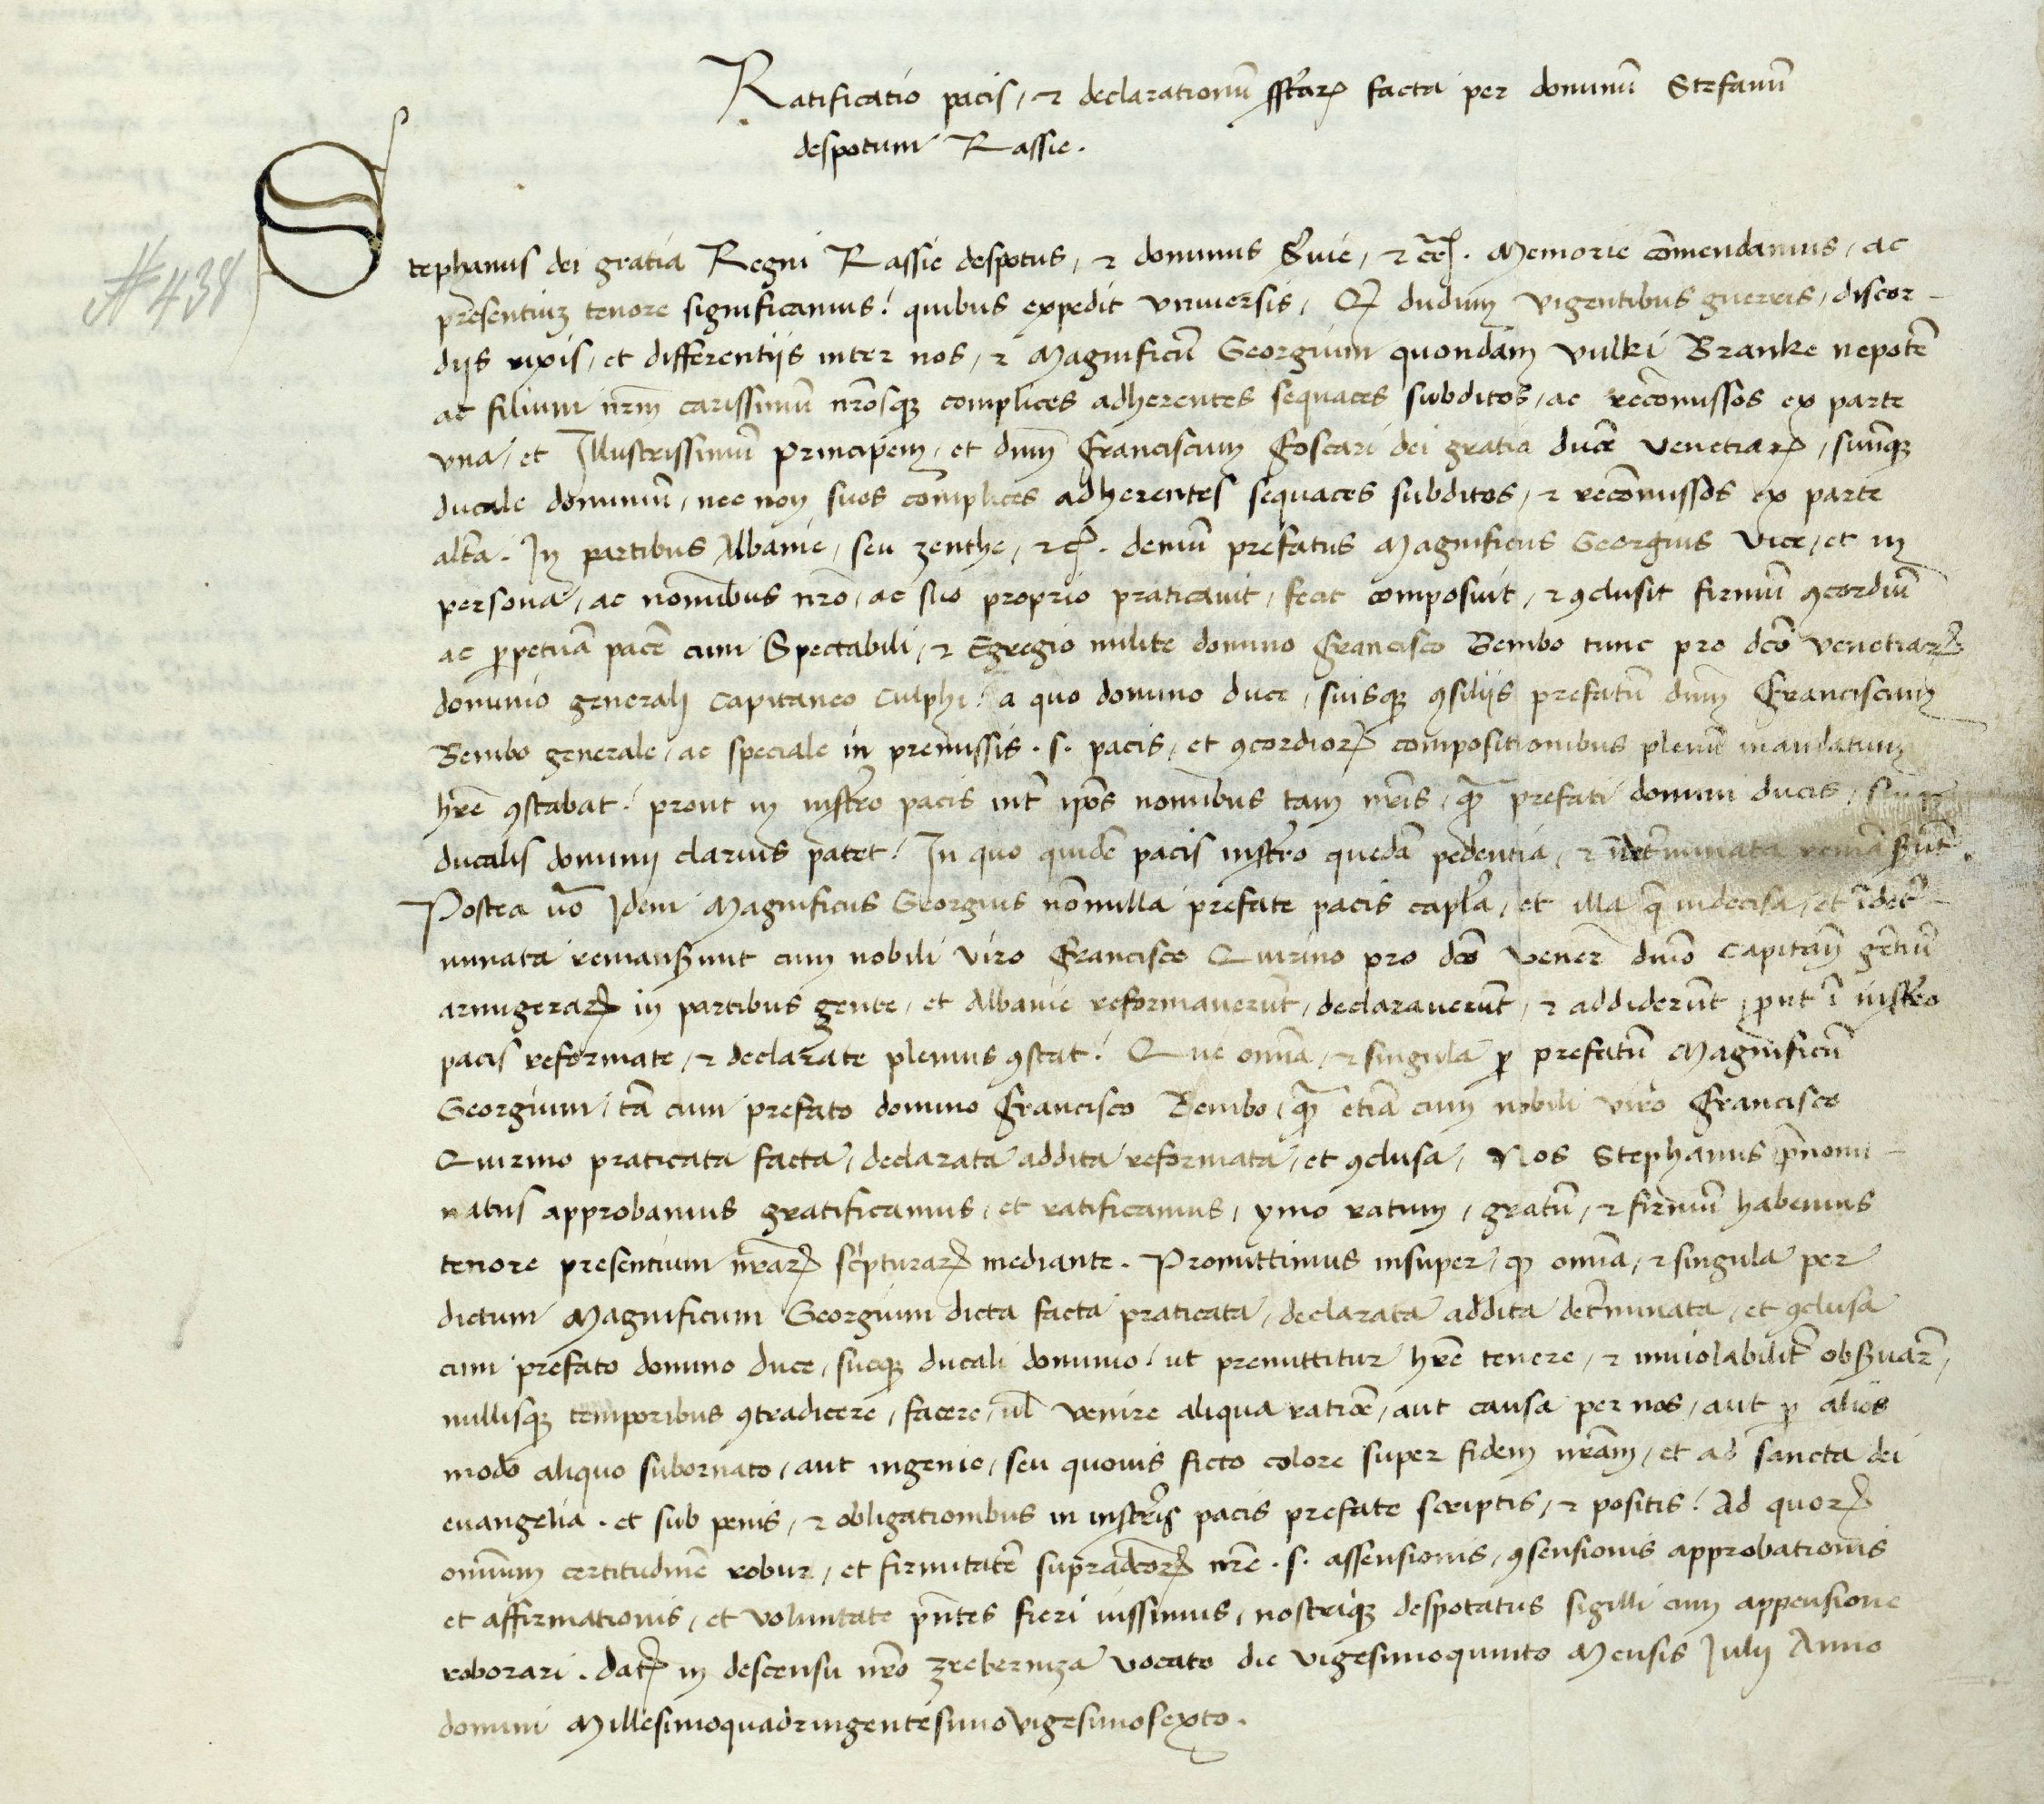 Ratificatio pacis, et declarationũ sstarꝝ facta per dominũ Stefanũ
despotum Rassie.
# 438
Stephanus dei gratia Regni Rassie despotus, et dominus Svie, et cet. Memorie cõmendamus, ac
presentiuʒ tenore significamus: quibus expedit universis, Qꝫ dudum vigentibus guerris, discor-
diis rixis, et differentiis inter nos, et Magnificũ Georgium quondam Vulki Branke nepotẽ
ac filium nr̃m carissimũ nr̃osqꝫ complices adherentes sequaces subditos, ac recõmissos ex parte
una, et Illustrissimũ principem, et dnm̃ Franciscum Foscari dei gratia ducẽ Venetiarꝝ, suũqꝫ
ducale dominiũ, nec non suos complices adherentes sequaces subditos, et recõmissos ex parte
altã. In partibus Albanie, seu zenthe, et cet. demũ prefatus Magnificus Georgius vice, et in
persona, ac nominibus nrõ, ac suo proprio praticavit, fecit composuit, et ꝯclusit firmũ ꝯcordiũ
ac ꝑpetuã pacẽ cum Spectabili, et Egregio milite domino Francisco Bembo tunc pro dcõ Venetiarꝝ
dominio generali Capitaneo Culphi: a quo domino duce, suisqꝫ ꝯsiliis prefatũ dnm̃ Franciscum
Bembo generale, ac speciale in premissis .s. pacis, et ꝯcordiorꝝ compositionibus plenũ mandatum
hr̃e ꝯstabat: prout in instr̃o pacis int̃ ip̃os nominibus tam nr̃is, qꝫ prefati domini ducis,
ducalis dominij clarius patet: In quo quidẽ pacis instr̃o quedã pẽdentia, et ĩdet̃minata remãserũt.
Postea võ Idem Magnificus Georgius nõnulla prefate pacis capl̃a, et illa q̃ indecisa, et ĩdet̃-
minata remanserunt cum nobili viro Francisco Quirino pro dcõ Veneꝝ dnĩo Capitañ gẽtiũ
armigerarꝝ in partibus gente, et Albanie reformaverũt, declaraverũt, et addiderũt, ꝓut ĩ instr̃o
pacis reformate, et declarate plenius ꝯstat: Que omĩa, et singula ꝑ prefatũ Magnificũ
Georgium, tã cum prefato domino Francisco Bembo, qꝫ etiã cum nobili viro Francisco
Quirino praticata facta, declarata addita reformata, et ꝯclusa, Nos Stephanus p̃nomi-
natus approbamus gratificamus, et ratificamus, ymo ratum, gratũ, et firmũ habemus
tenore presentium nr̃arꝝ sc̃pturarꝝ mediante. Promittimus insuper, qꝫ omĩa, et singula per
dictum Magnificum Georgium dicta facta praticata, declarata addita det̃minata, et ꝯclusa
cum prefato domino duce, sueqꝫ ducali dominio: ut premittitur hr̃e tenere, et inviolabilit̃ observar̃,
nullisqꝫ temporibus ꝯtradicere, facere, ul̃ venire aliqua ratiõe, aut causa per nos, aut ꝑ alios
modo aliquo subornato, aut ingenio, seu quovis ficto colore super fidem nr̃am, et ad sancta dei
evangelia. et sub penis, et obligationibus in instr̃is pacis prefate scriptis, et positis: Ad quorꝝ
omnium certitudinẽ robur, et firmitatẽ supradcõrꝝ nr̃e .s. assensionis, ꝯsensionis approbationis
et affirmationis, et voluntate p̃ntes fieri iussimus, nostriqꝫ despotatus sigilli cum appensione
roborari. datꝫ in descensu nr̃o zreberniza vocato die vigesimoquinto Mensis Julij Anno
domini Millesimoquadringentesimovigesimosexto.